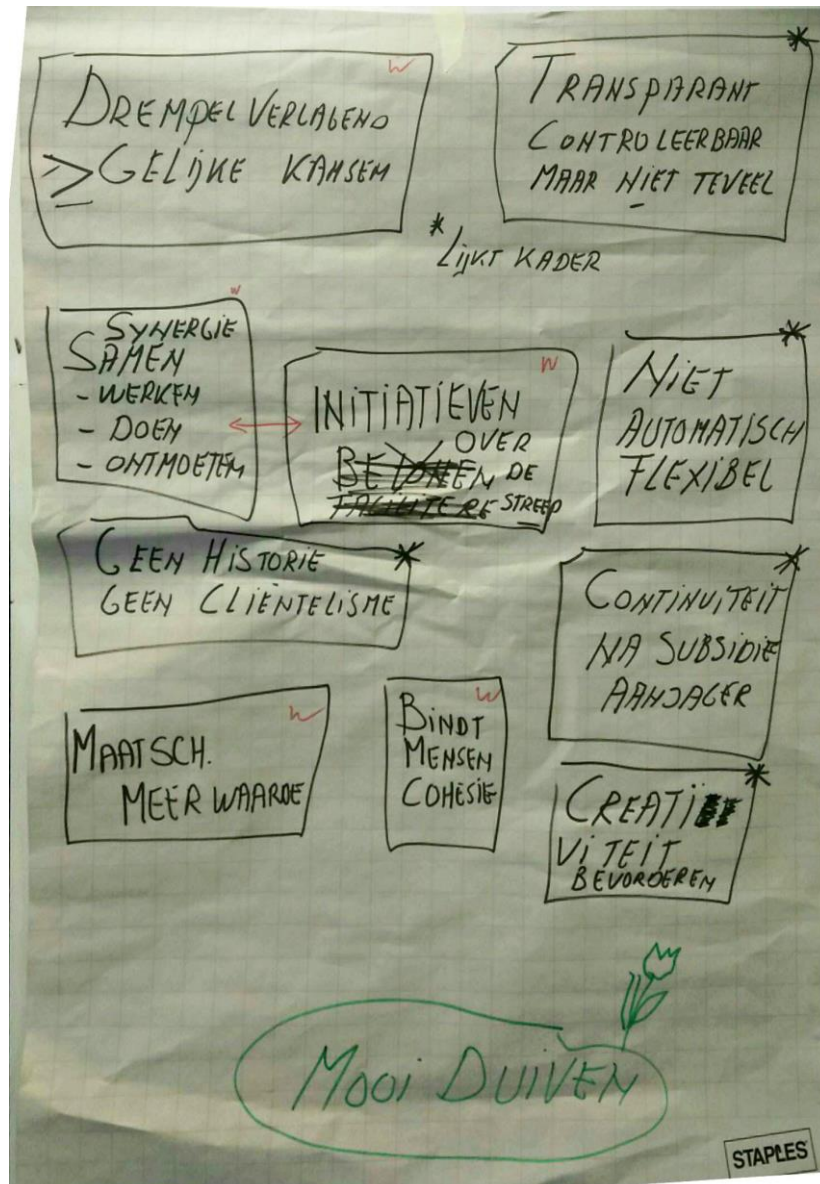 W
DREMPEL VERLAGEND
> GELIJKE KANSEN
*
TRANSPARANT
CONTROLEERBAAR
MAAR NIET TEVEEL
* LIJKT KADER
W
SYNERGIE
SAMEN
- WERKEN
- DOEN
- ONTMOETEN
W
INITIATIEVEN
OVER
BELONEN DE
FACILITERE STREEP
*
NIET
AUTOMATISCH
FLEXIBEL
*
GEEN HISTORIE
GEEN CLIËNTELISME
*
CONTINUITEIT
NA SUBSIDIE
AANJAGER
W
MAATSCH.
MEER WAARDE
W
BINDT
MENSEN
COHESIE
*
CREATI
VITEIT
BEVORDEREN
MOOI DUIVEN
STAPLES